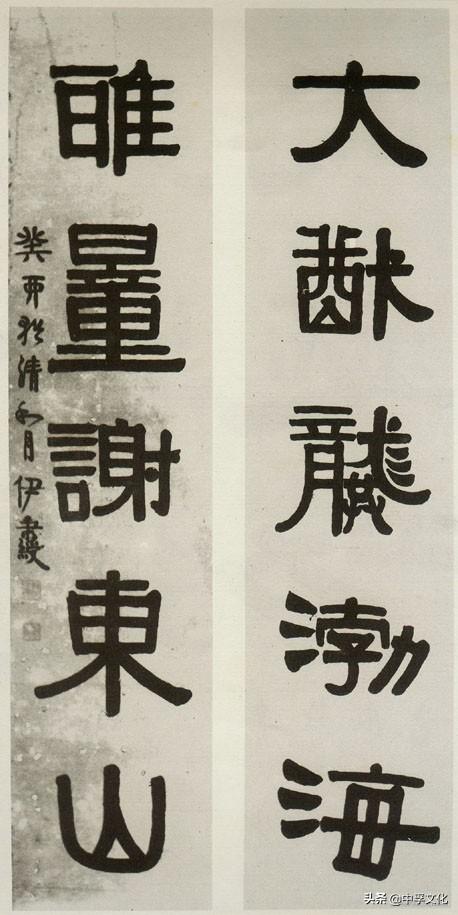 大猷龔渤海
雅量謝東山
癸酉清和月伊秉綬
头条 @中孚文化